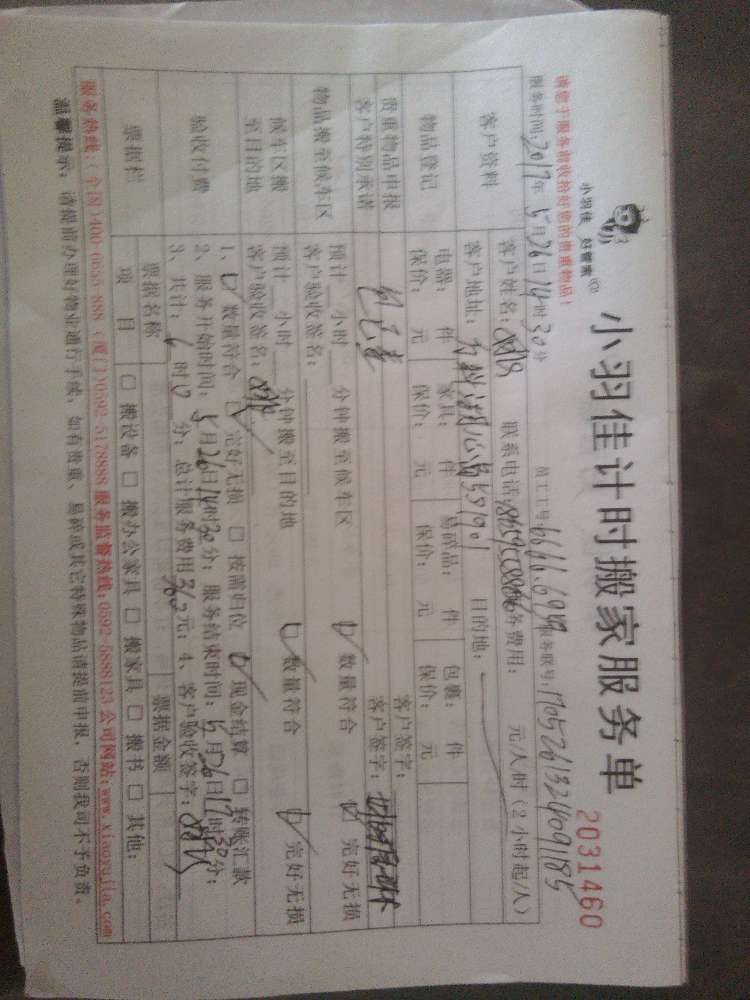 小羽佳 好管家
小羽佳计时搬家服务单
2031460
请您于服务前收拾好您的贵重物品！
服务时间：2017年5月26日14时30分 员工工号：6666.6989 服务联号：
客户资料
客户姓名： 联系电话： 服务费用： 元/人/时（2小时起/人）
客户地址： 目的地：
物品登记
电器： 件 家具： 件 易碎品： 件 包裹： 件
保价： 元 保价： 元 保价： 元 保价： 元
客户签字：
贵重物品申报
客户特别承诺
客户签字：
物品搬至候车区
预计 小时 分钟搬至候车区 数量符合 完好无损
客户验收签名：
候车区搬
至目的地
预计 小时 分钟搬至目的地 数量符合 完好无损
客户验收签名：
验收付费
1、 数量符合 完好无损 按需归位 现金结算 转账汇款
2、服务开始时间：5月26日14时30分；服务结束时间：5月26日17时30分；
3、共计：6时0分；总计服务费用360元；4、客户验收签字：
票据栏
票据名称 票据金额
项目 搬设备 搬办公家具 搬家具 搬书 其他：
服务热线：（全国）400-0555-888（厦门）0592-5178888 服务监督热线：0592-5888123 公司网站：www.xiaoyujia.com
温馨提示：请提前办理好物业通行手续，如有贵重、易碎或其它特殊物品请提前申报，否则我司不予负责。